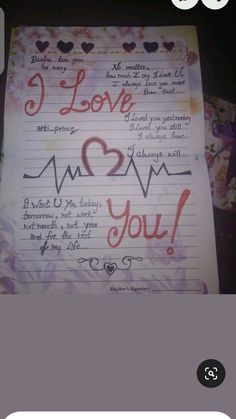 No matter
how much I say I Love U,
I always love you more
than that....
I Love
I loved you yesterday
I loved you still
I always have..
I always will....
I Want U You today,
tomorrow, next week,
next month, next year
and for the rest
of my life....
You!
Teacher's Signature